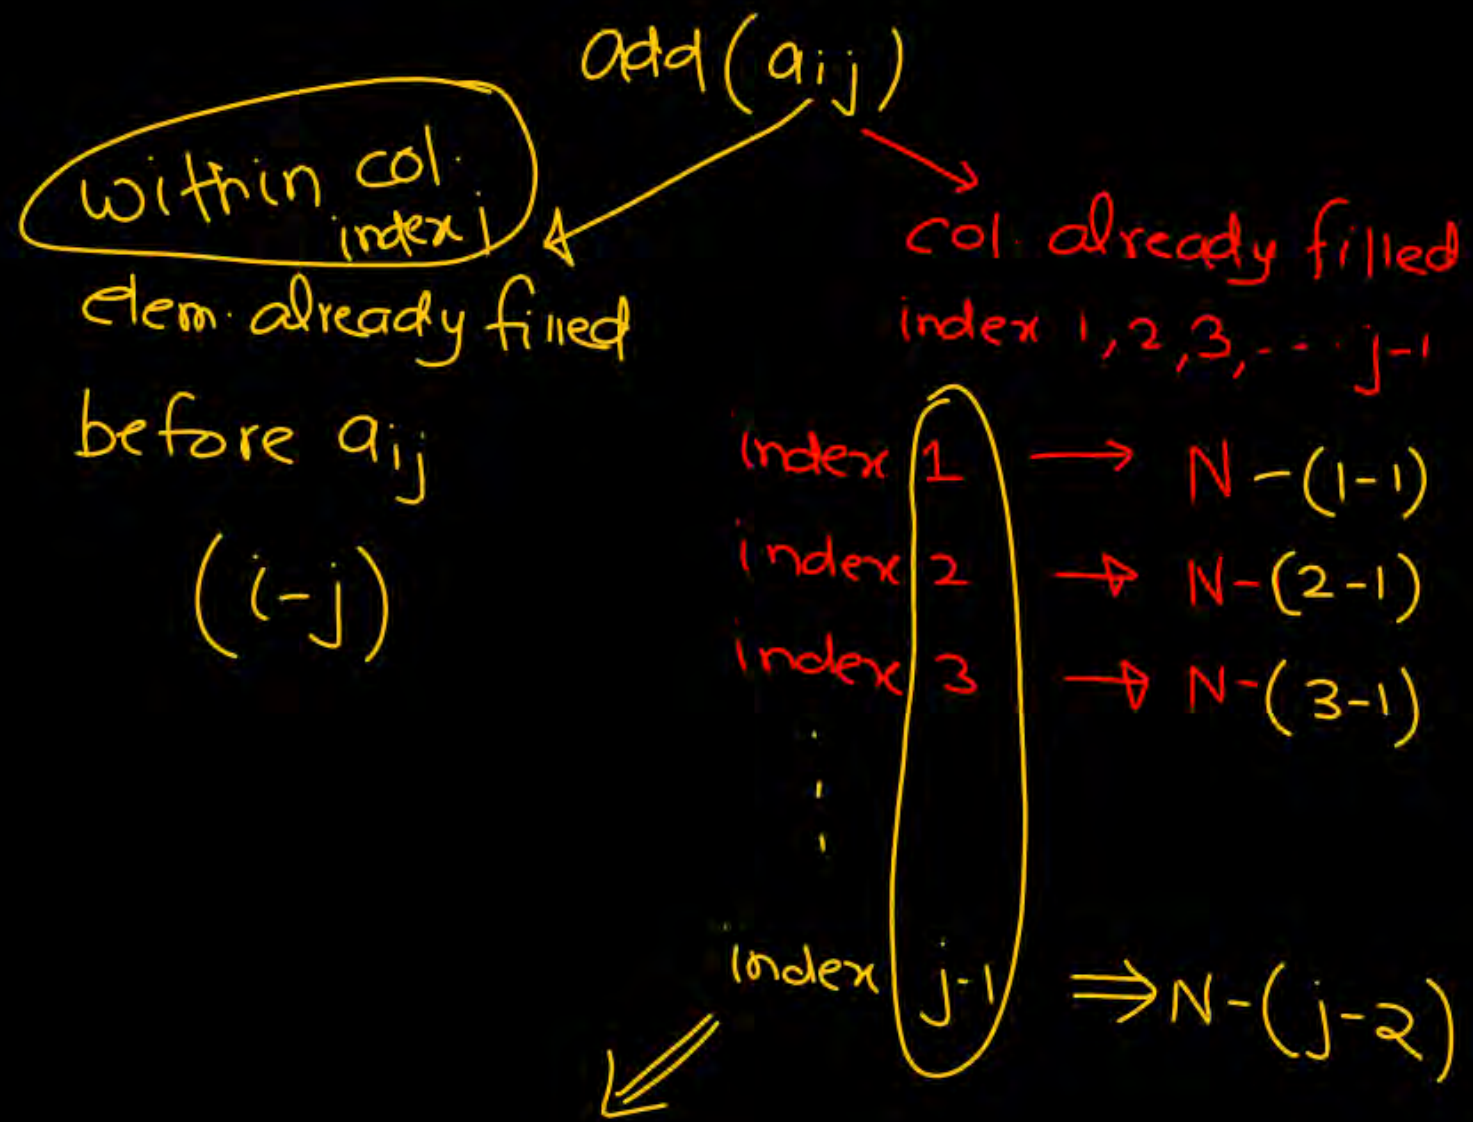 add(aij)
within col.
index j
elem. already filled
before aij
(i-j)
col. already filled
index 1,2,3,--- j-1
index 1 → N-(1-1)
index 2 → N-(2-1)
index 3 → N-(3-1)
index j-1 ⇒ N-(j-2)